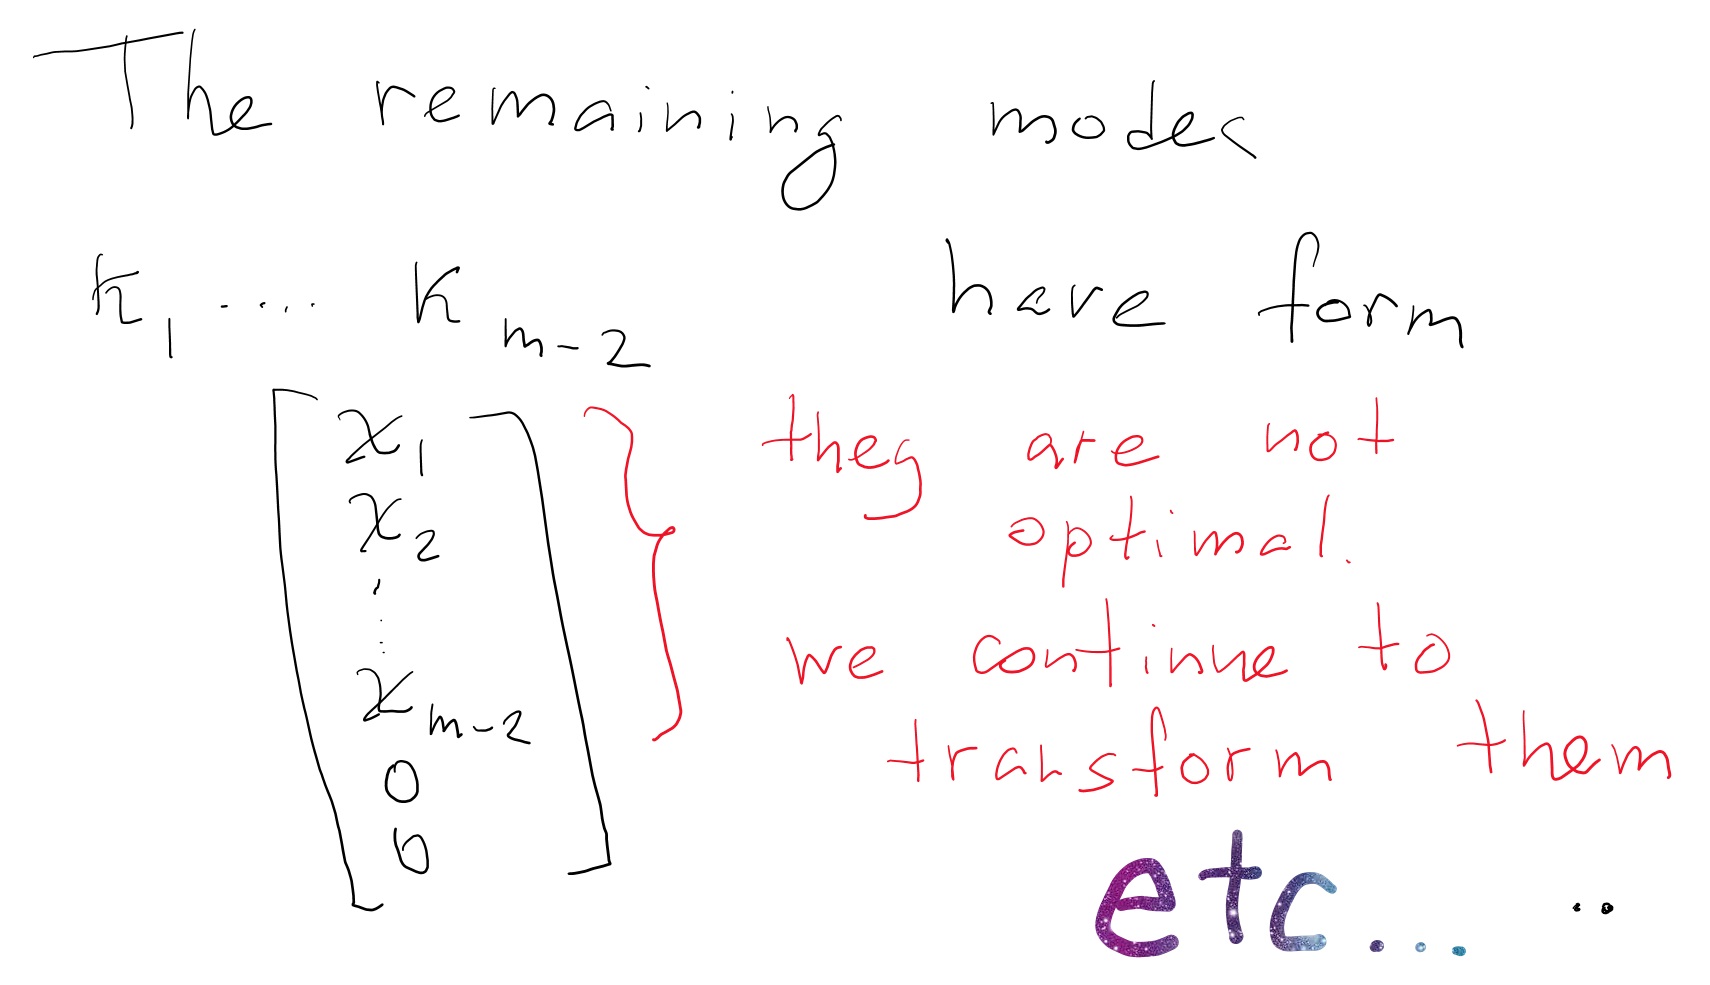 The remaining modes
k₁ .... k m-2 have form
x₁ they are not
x₂ optimal.
⋮ we continue to
x m-2 transform them
0
0 etc... ..